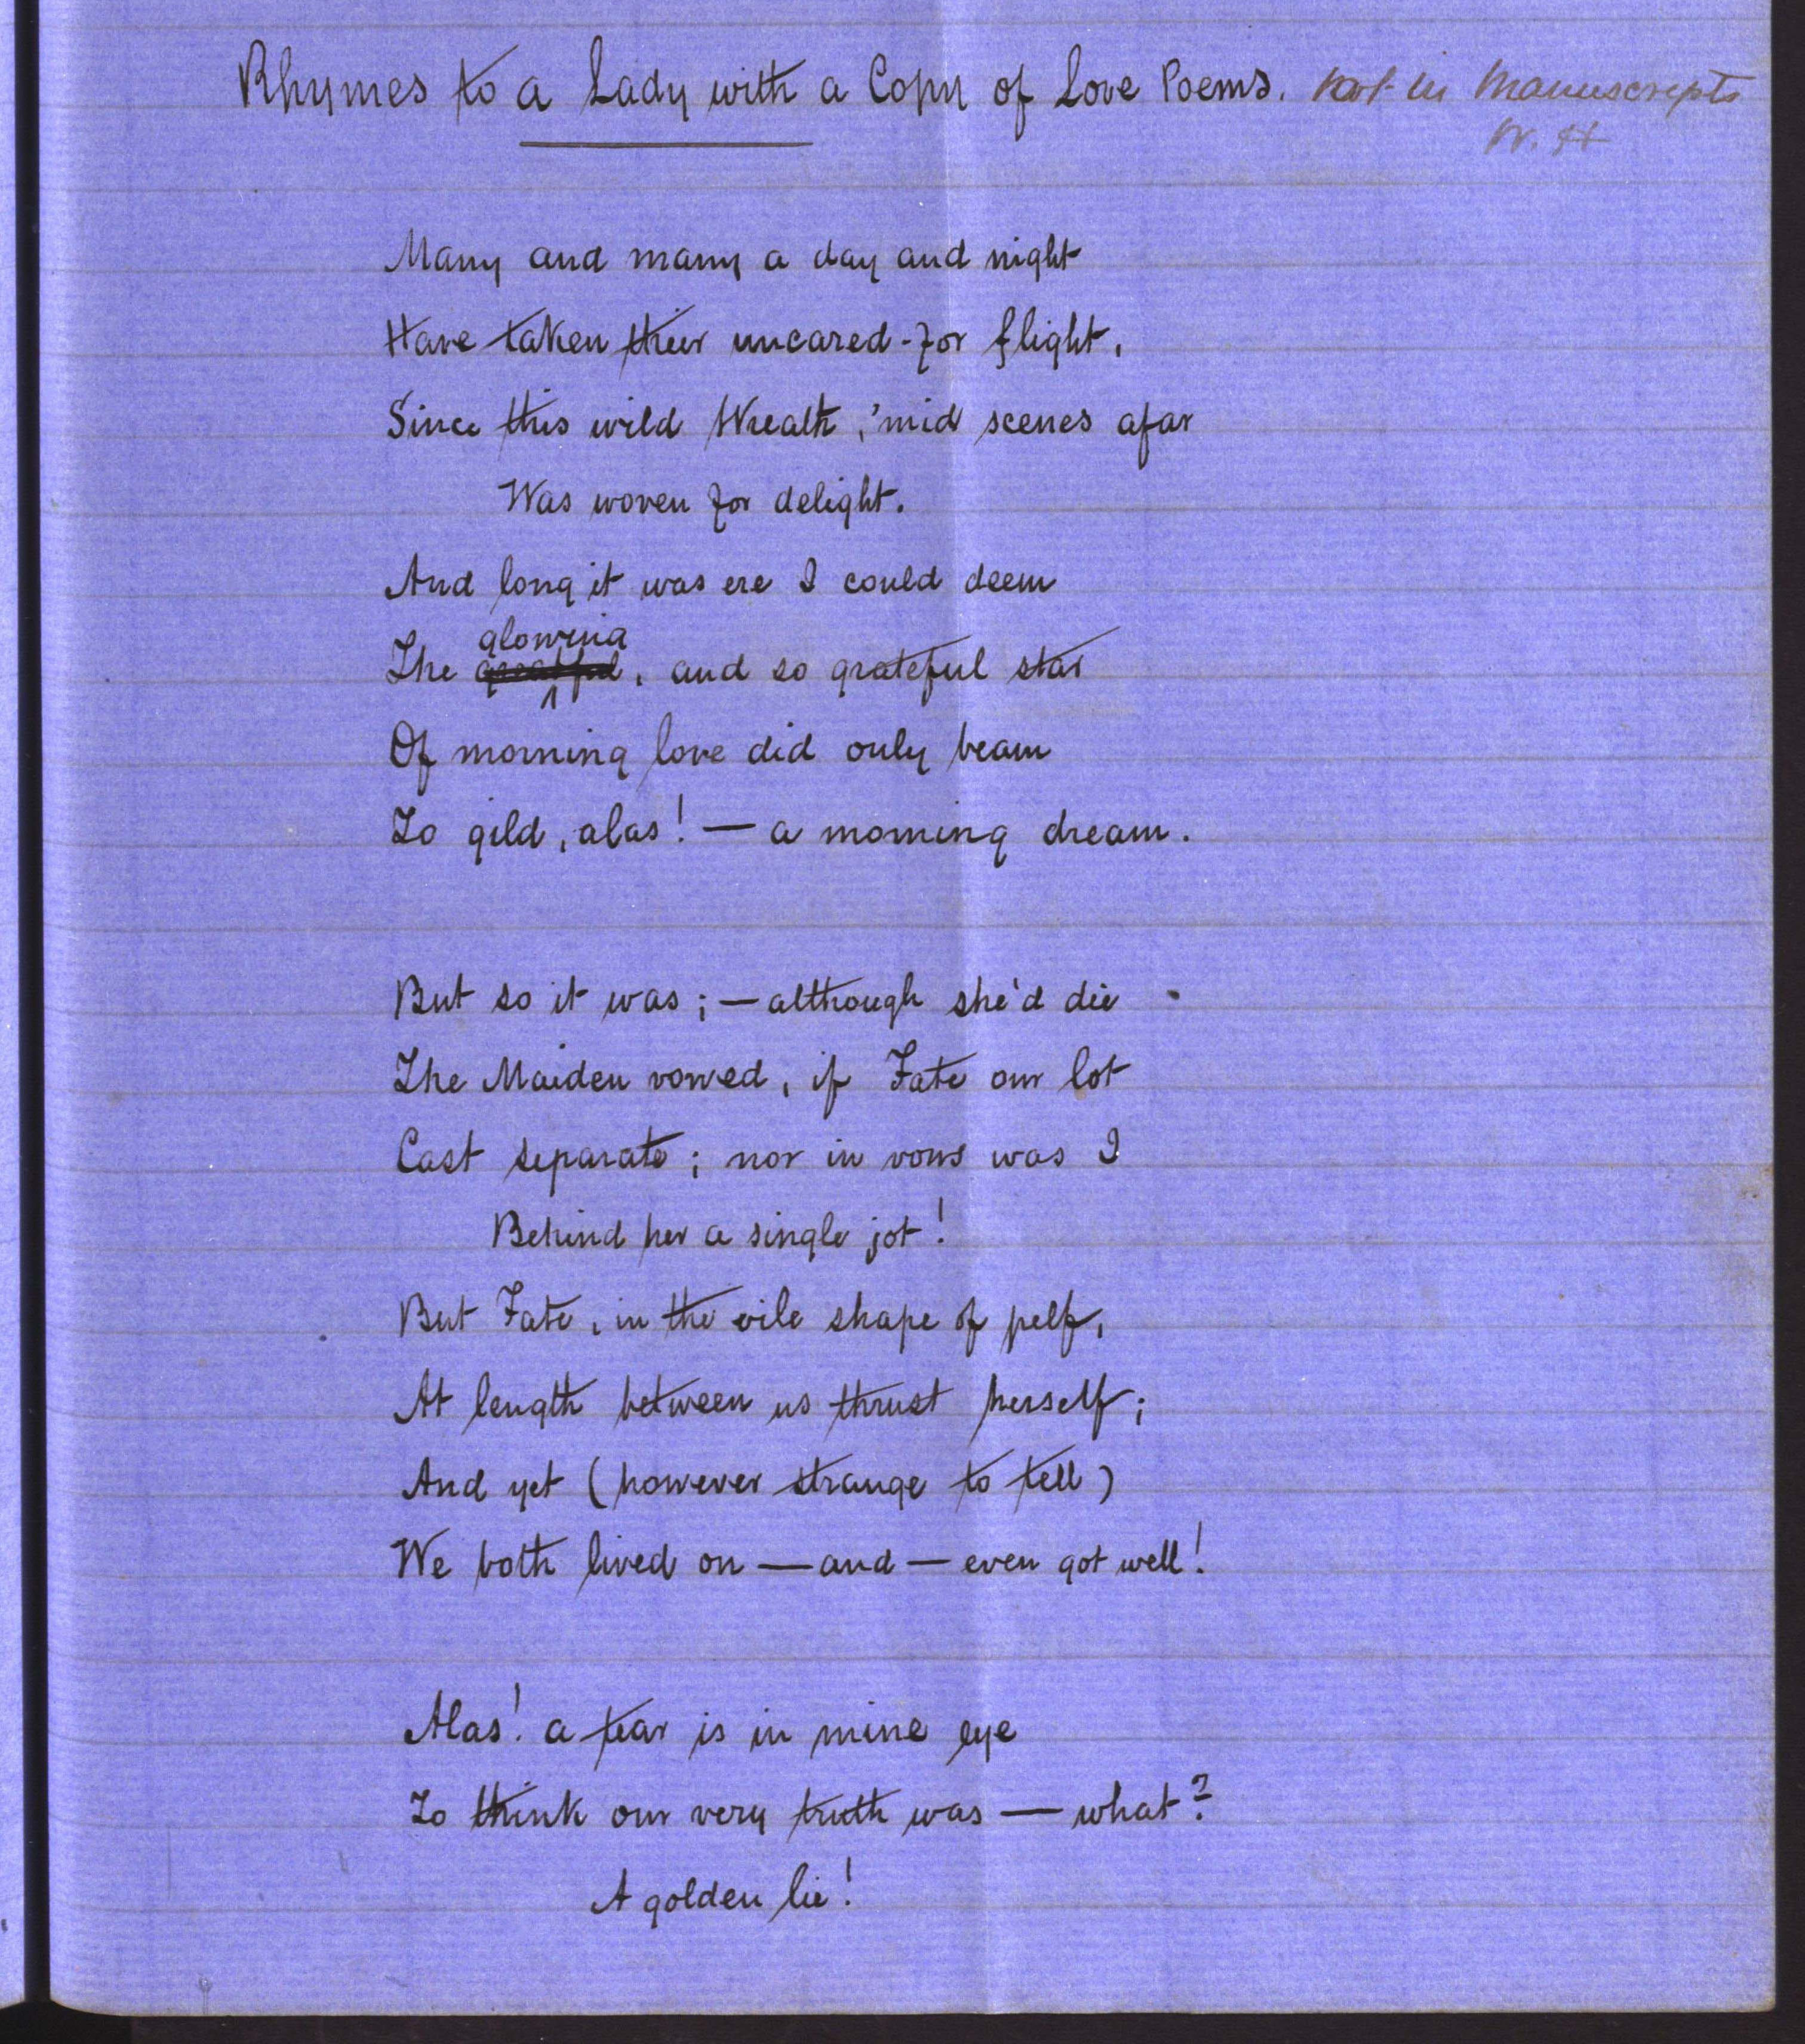 Rhymes to a Lady with a Copy of Love Poems. not in Manuscripts
W. H
Many and many a day and night
Have taken their uncared-for flight,
Since this wild Wreath, 'mid scenes afar
Was woven for delight.
And long it was ere I could deem
glowing
The , and so grateful star
Of morning love did only beam
To gild, alas! — a morning dream.
But so it was; — although she'd die
The Maiden vowed, if Fate our lot
Cast separate; nor in vows was I
Behind her a single jot!
But Fate, in the vile shape of pelf,
At length between us thrust herself;
And yet (however strange to tell)
We both lived on — and — even got well!
Alas! a tear is in mine eye
To think our very truth was — what?
A golden lie!